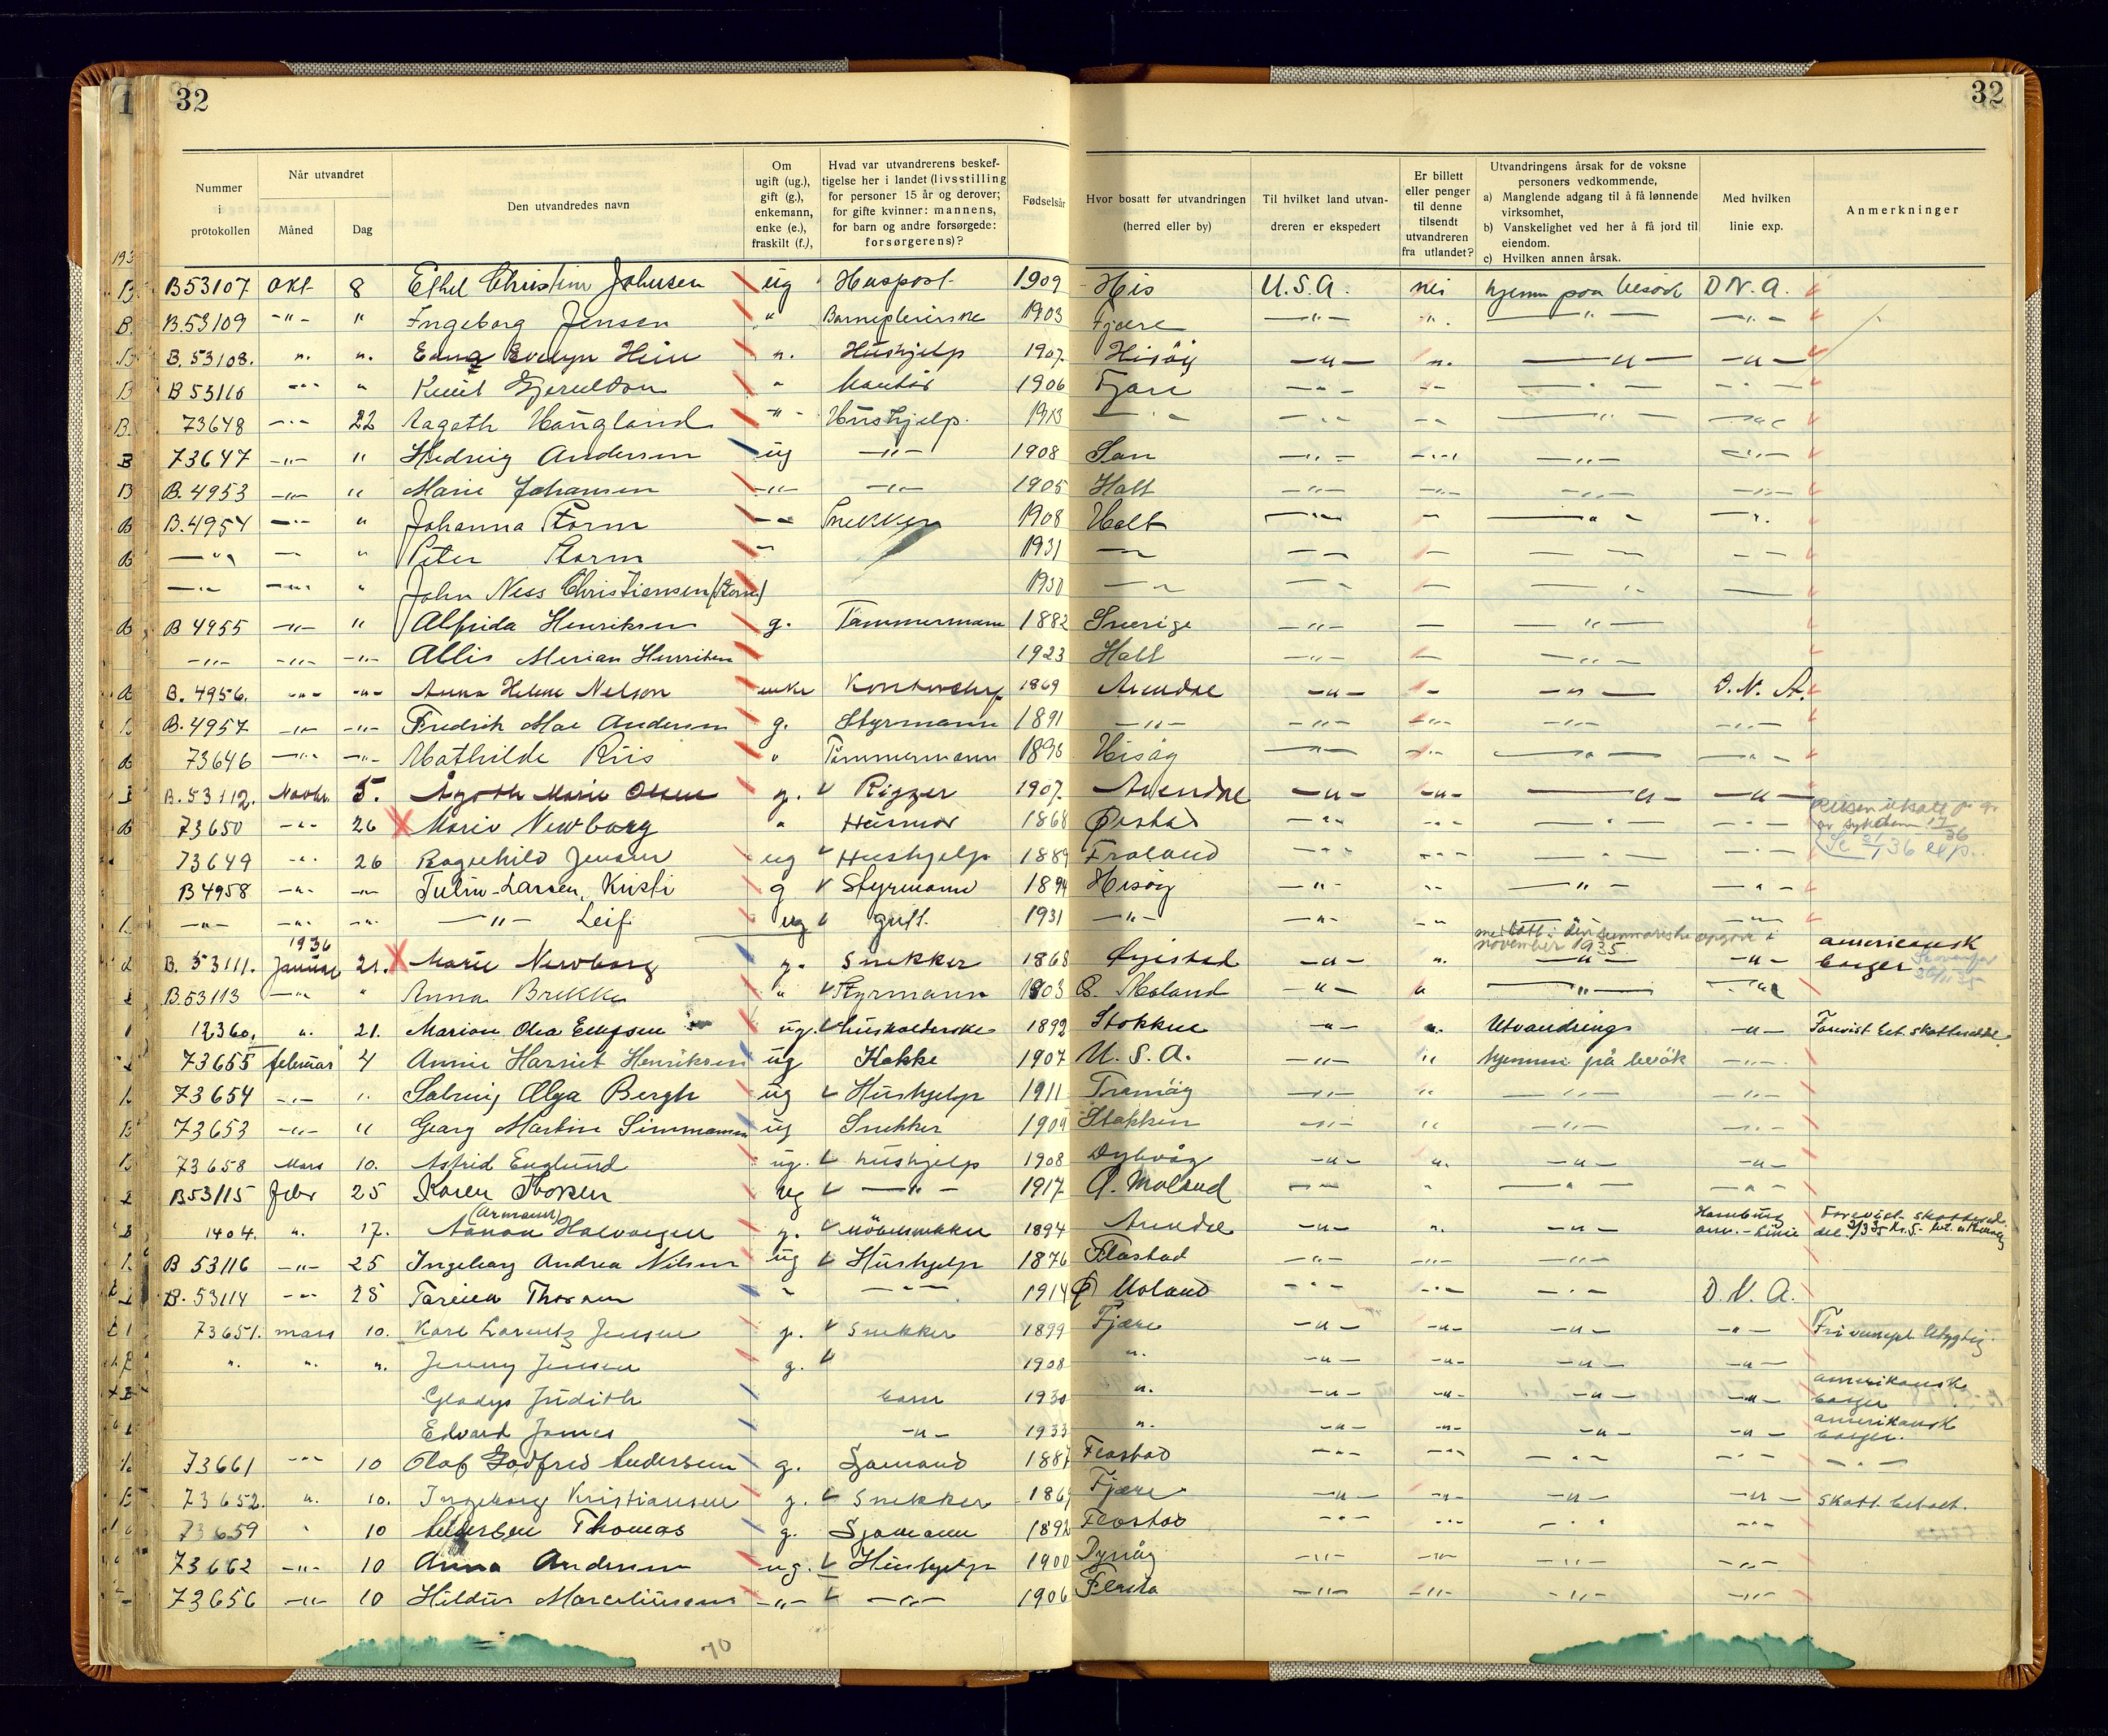 32
32
Nummer i protokollen
Når utvandret
Måned
Dag
Den utvandredes navn
Om ugift (ug.), gift (g.), enkemann, enke (e.), fraskilt (f.),
Hvad var utvandrerens beskef-
tigelse her i landet (livsstilling
for personer 15 år og derover;
for gifte kvinner: mannens,
for barn og andre forsørgede:
forsørgerens)?
Fødselsår
Hvor bosatt før utvandringen
(herred eller by)
Til hvilket land utvan-
dreren er ekspedert
Er billett
eller penger
til denne
tilsendt
utvandreren
fra utlandet?
Utvandringens årsak for de voksne
personers vedkommende,
a) Manglende adgang til å få lønnende
virksomhet,
b) Vanskelighet ved her å få jord til
eiendom.
c) Hvilken annen årsak.
Med hvilken
linie exp.
Anmerkninger
B53107 Okt 8 Ethel Christine Johnsen ug Huspost 1909 His U.S.A. nei hjemme paa besøk D.N.A.
B.53109 -"- " Ingeborg Jensen " Barnepleierske 1903 Fjære -"- " -"- -"-
B.53108. ". ". Edna Evelyn Hein ". Hushjelp 1907. Hisøy -"- ". -"- -"-
B 53110 -"- " Knut Gjeruldsen " Kontor 1906 Fjære -"- -"- -"- -"-
73648 -"- 22 Aagoth Haugland -"- Hushjelp. 1913 -"- -"- -"- -"- -"-
73647 -"- " Hedvig Andersen ug -"- 1908 -"- -"- -"- -"-
B.4953 -"- " Marie Johansen -"- -"- 1905 Holt -"- -"- -"- -"-
B.4954 -"- " Johanna Storm -"- Snekker 1908 Holt -"- - -"- -"-
-"- - " Peter Storm -"- 1931 -"- -"- - -"- -"-
-"- -"- " John Ness Christiansen (Storm) 1930 -"- -"- - -"- -
B 4955 -"- " Alfrida Henriksen g. Tømmermann 1882 Sverige -"- - -"-
-"- -"- -"- Allis Merian Henriksen 1923 Holt -"- - -"-
B.4956. -"- -"- Anna Helene Nelson enke 1869 Arendal -"- - -"- D.N.A.
B.4957 -"- -"- Fredrik Mae Andersen g. Styrmann 1891 -"- -"- -"- -"- -"-
73646 -"- -"- Mathilde Riis " Tømmermann 1896 Hisøy -"- -"- -"- -"-
B.53112. Novbr. 5. Agoth Marie Olsen g. Rigger 1907. Arendal -"- -"- -"- -"-
73650 -"- 26 Marie Newborg " Husmor 1868 Øiestad -"- -"- -"- -"- Reisen utsatt p. gr. av sykdom
73649 -"- 26 Ragnhild Jensen ug Hushjelp 1889 Froland -"- -"- -"- -"-
B4958 -"- -"- Tulin-Larsen, Kristi g Styrmann 1894 Hisøy -"- -"- -"- -"-
-"- -"- -"- -"- Leif ug gutt. 1931 -"- -"- -"- -"-
november 1935.
1936
B. 53111. Januar 21. Marie Newborg g. Snekker 1868 Øyestad -"- ". -"- -"- americansk borger
B.53113 -"- " Anna Brekke " Styrmann 1903 Ø. Moland -"- " -"- -"-
12360. ". 21. Marion Olea Ellefsen ug. husholderske 1892 Stokken -"- ". Utvandring -"-
73655 februar 4 Annie Harriet Henriksen ug Kokke 1907 U.S.A. -"- " hjemme på besøk -"-
73654 -"- " Solveig Olga Bergh ug Hushjelp 1911 Tromøy -"- " -"- -"-
73653 -"- " Georg Martin Simmonsen ug Snekker 1909 Stokken -"- " -"- -"-
73658 Mars 10. Astrid Englund ug. hushjelp 1908 Dybvåg -"- ". -"- -"-
B53115 Febr 25 Karen Thorsen ug -"- 1917 Ø. Moland -"- " -"- -"-
1404. ". 17. (Armann) Aanon Halvorsen g. Møbelsnekker 1894 Arendal -"- ". -"- Hamburg am.-Linie
B 53116 -"- 25 Ingeborg Andrea Nilsen ug Hushjelp 1876 Flostad -"- -"- -"-
B.53114 -"- 25 Torena Thorsen " -"- 1914 Ø Moland -"- -"- -"- D.N.A.
73651. mars 10. Karl Lorentz Jensen g. Snekker 1899 Fjære -"- -"- -"- -"-
". ". ". Jenny Jensen g. 1908 ". -"- -"- -"- -"-
Gladys Judith barn 1930 ". -"- -"- -"- -"- amerikansk borger
Edvard James -"- 1933 ". -"- -"- -"- -"- amerikansk borger.
73661 -"- 10 Olaf Godfred Andersen g. Sjømand 1887 Flostad -"- -"- -"- -"- -"-
73652. ". 10. Ingeborg Kristiansen g. Snekker 1869 Fjære -"- -"- -"- -"- Skatt. betalt.
73659 " 10 Andersen Thomas g. Sjømann 1892 Flostad -"- -"- -"- -"-
73662 -"- 10 Anna Andersen ug. Hushjelp 1900 Dypvåg -"- -"- -"- -"-
73656 -"- 10 Hildur Marcelinsen -"- -"- 1906 Flosta -"- -"- -"- -"-
70